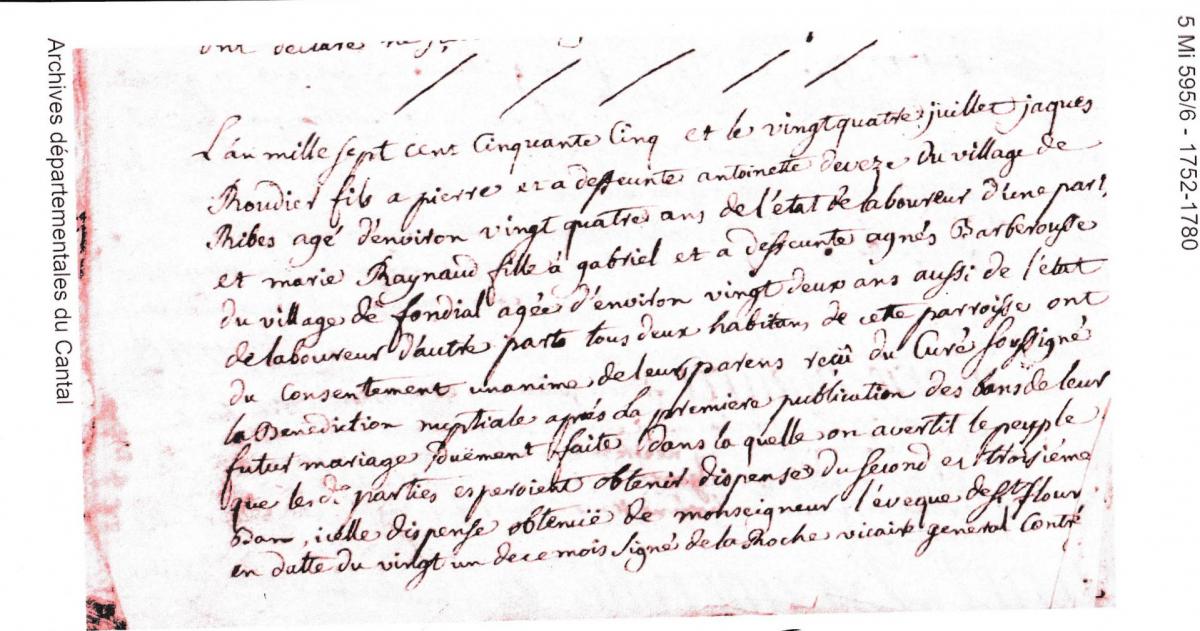 ont declaré
L'an mille sept cent Cinquante Cinq et le vingtquatre juillet jaques
Roudier fils a pierre et a deffeunte antoinette deveze du village de
Ribes agé d'environ vingt quatre ans de l'état de laboureur d'une part
et marie Raynaud fille à gabriel et a deffeunte agnés Barberousse
du village de fondial agée d'environ vingt deux ans aussi de l'état
de laboureur d'autre part tous deux habitans de cette parroisse ont
du Consentement unanime de leurs parens reçû du Curé soussigné
la Benediction nuptiale aprés la premiere publication des bans de leur
futur mariage duëment faite dans la quelle on avertit le peuple
que les d. parties esperoient obtenir dispense du second et troisiéme
Ban, icelle dispense obtenuë de monseigneur l'éveque de St flour
en datte du vingt un de ce mois signé de la Roche vicaire general Contré
Archives départementales du Cantal
5 Mi 595/6 - 1752-1780